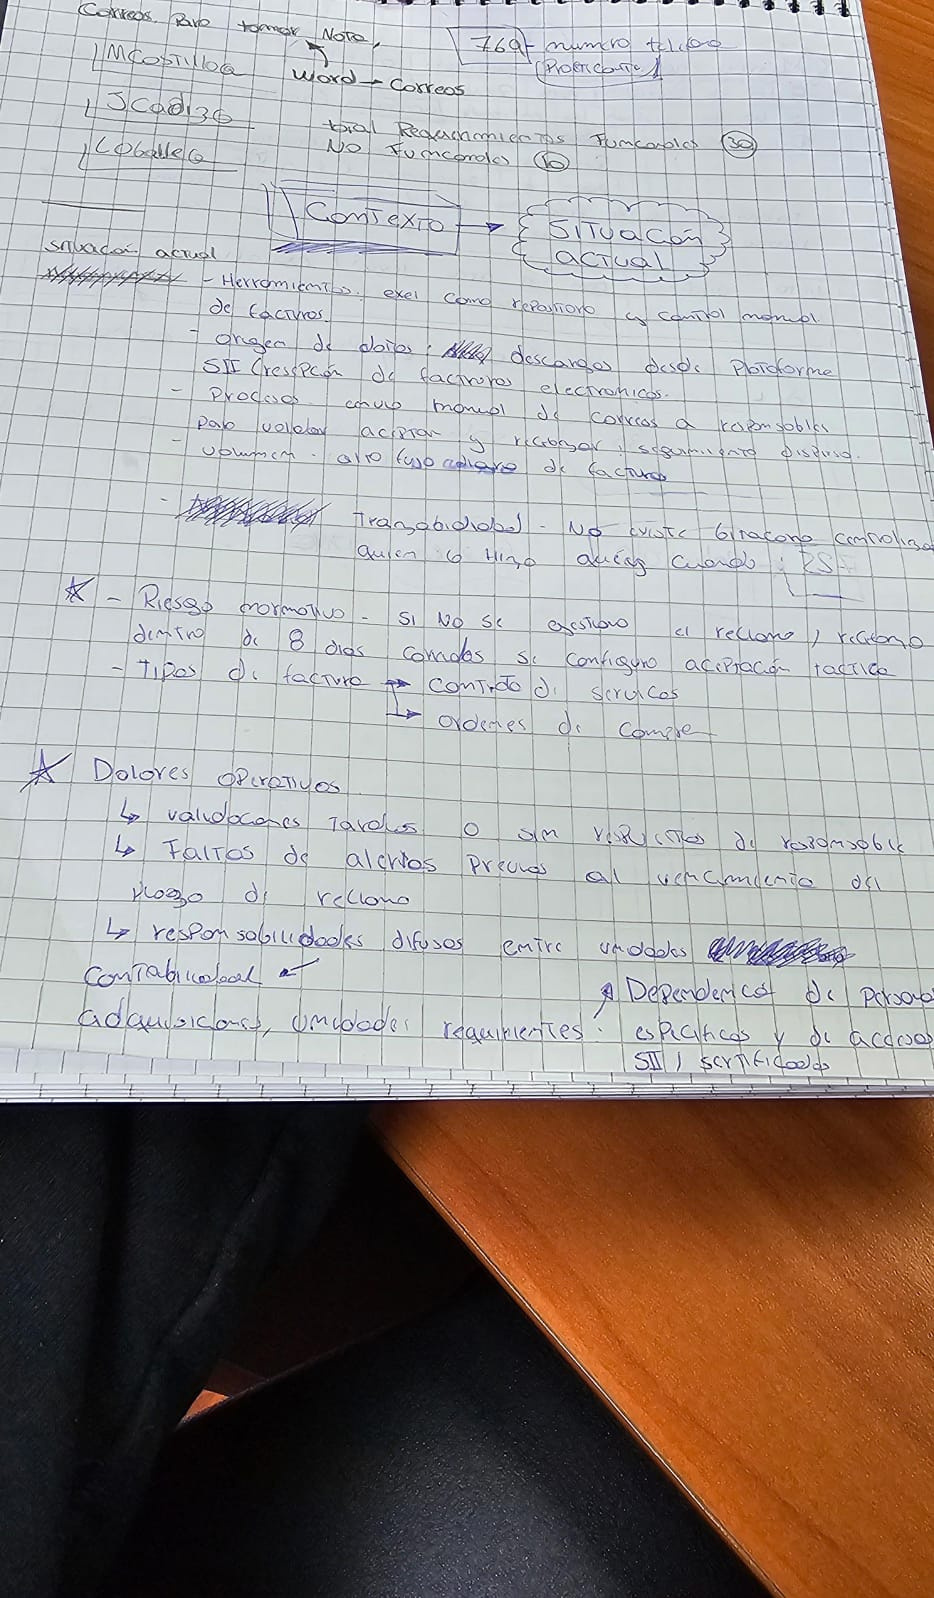 Correos. Para tomar Nota,
769- numero teléfono
MCastilloa
Word → Correos
JCadi36
total Requerimientos Funcionales 30
NO Funcionales 10
CONTEXTO → SITUACÓN
ACTUAL
situación actual
- Herramientas: exel como repositorio y control manual
de facturas
- origen de datos: descargas desde Plataforma
SII (resepción de facturas electronicas.
- Proceso envio manual de correos a responsables
para validar aceptar y rechazar; seguimiento disperso.
- volumen. alto flujo de facturas
- Trazabilidad - NO existe bitacora centraliza
quien lo Hizo cuando:
- Riesgo normativo - SI NO se gestiona el reclamo / rechazo
dentro de 8 dias corridos se configura aceptación tactica
- Tipos de factura → contrato de servicos
↳ ordenes de compra
Dolores operativos
↳ validaciones Tardias o sin respuestas de responsable
↳ Faltas de alertas previas al vencimiento del
plazo de reclamo
↳ responsabilidades difusas entre unidades
contabilidad
Dependencia de persona
adquisiciones, unidades requirientes.
especificas y de acceso
SII /